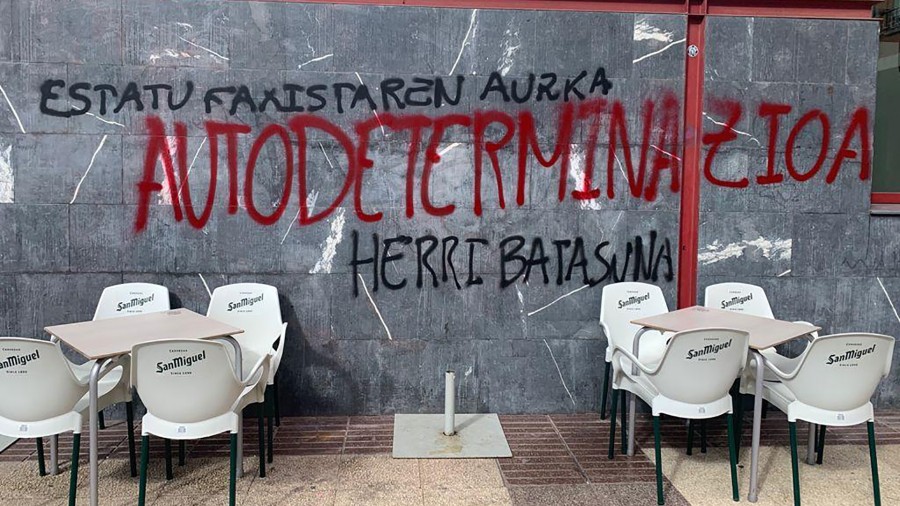 ESTATU FAXISTAREN AURKA
AUTODETERMINAZIOA
HERRI BATASUNA
SanMiguel
SanMiguel
SanMiguel
SanMiguel
SanMiguel
SanMiguel
SanMiguel
SanMiguel